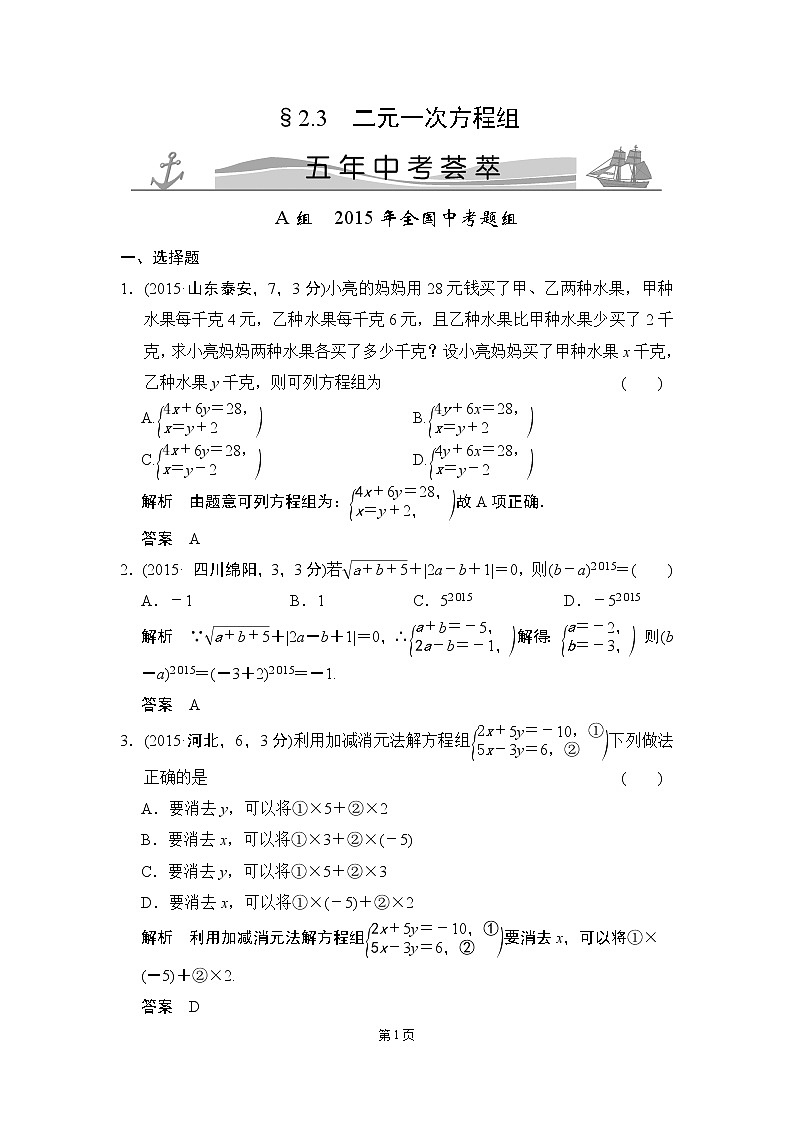 §2.3 二元一次方程组
五年中考荟萃
A组 2015年全国中考题组
一、选择题
1．(2015·山东泰安，7，3分)小亮的妈妈用28元钱买了甲、乙两种水果，甲种
水果每千克4元，乙种水果每千克6元，且乙种水果比甲种水果少买了2千
克，求小亮妈妈两种水果各买了多少千克？设小亮妈妈买了甲种水果x千克，
乙种水果y千克，则可列方程组为 ( )
A.{4x＋6y＝28， x＝y＋2) B.{4y＋6x＝28， x＝y＋2)
C.{4x＋6y＝28， x＝y－2) D.{4y＋6x＝28， x＝y－2)
解析 由题意可列方程组为：{4x＋6y＝28， x＝y＋2，)故A项正确．
答案 A
2．(2015· 四川绵阳，3，3分)若√(a＋b＋5)＋|2a－b＋1|＝0，则(b－a)²⁰¹⁵＝( )
A．－1 B．1 C．5²⁰¹⁵ D．－5²⁰¹⁵
解析 ∵√(a＋b＋5)＋|2a－b＋1|＝0，∴{a＋b＝－5， 2a－b＝－1，)解得：{a＝－2， b＝－3，) 则(b
－a)²⁰¹⁵＝(－3＋2)²⁰¹⁵＝－1.
答案 A
3．(2015·河北，6，3分)利用加减消元法解方程组{2x＋5y＝－10，① 5x－3y＝6，②)下列做法
正确的是 ( )
A．要消去y，可以将①×5＋②×2
B．要消去x，可以将①×3＋②×(－5)
C．要消去y，可以将①×5＋②×3
D．要消去x，可以将①×(－5)＋②×2
解析 利用加减消元法解方程组{2x＋5y＝－10，① 5x－3y＝6，②)要消去x，可以将①×
(－5)＋②×2.
答案 D
第1页